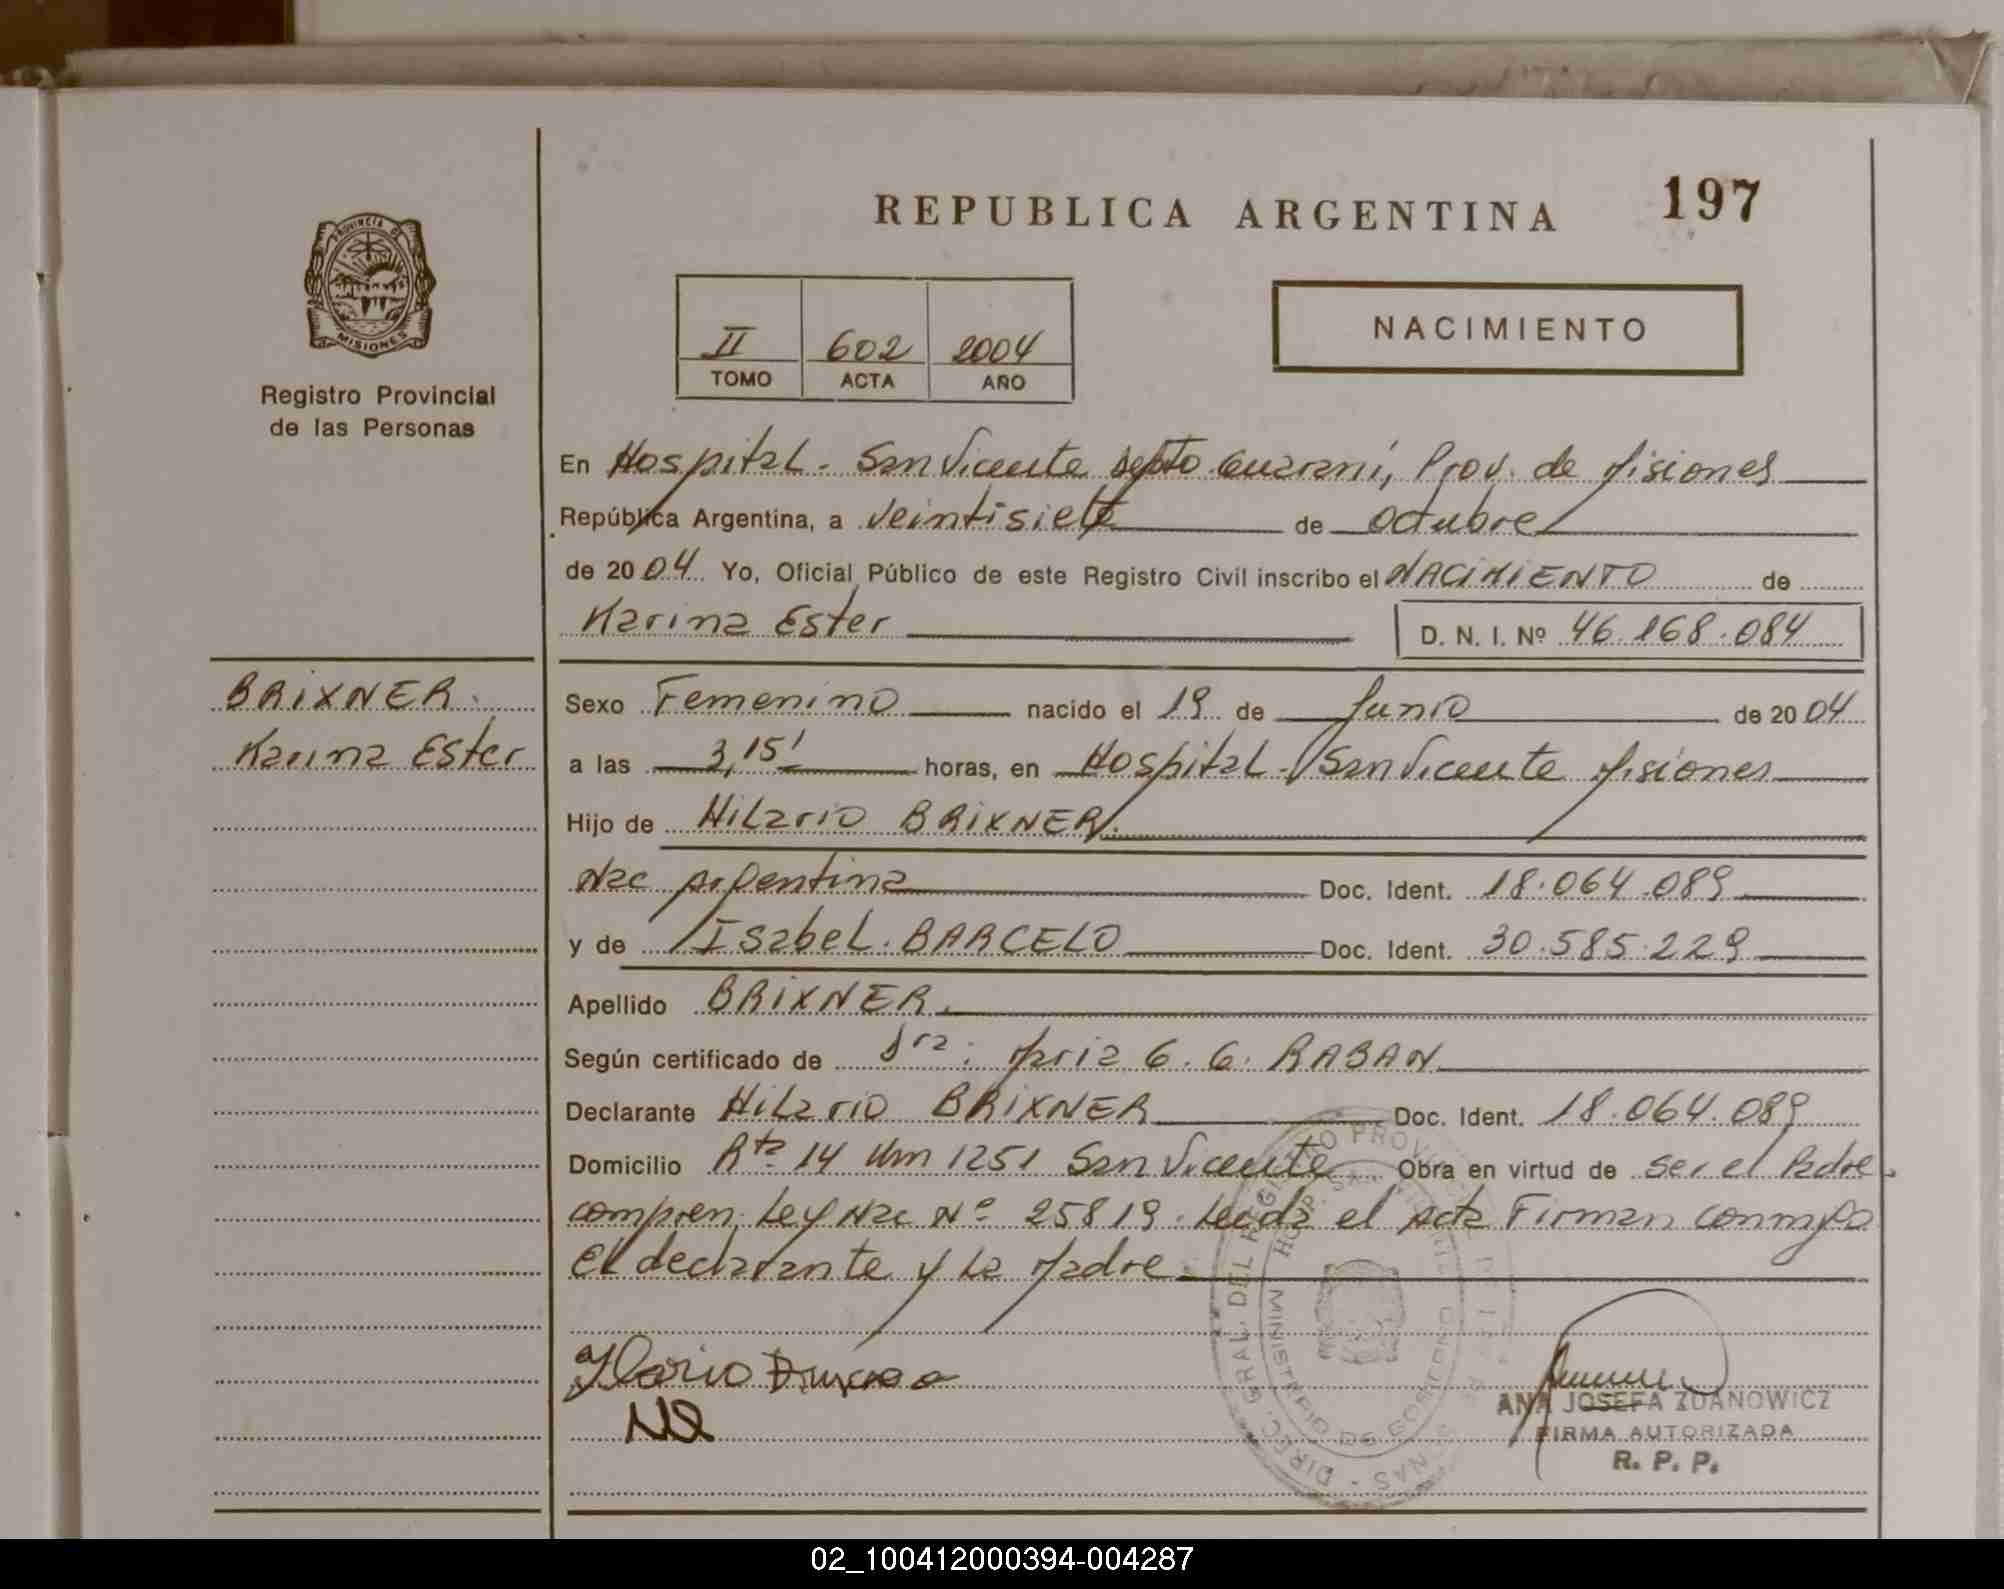 REPUBLICA ARGENTINA 197
PROVINCIA DE
MISIONES
Registro Provincial
de las Personas
NACIMIENTO
II 602 2004
TOMO ACTA AÑO
En Hospital - San Vicente depto Guaraní, Prov. de Misiones
República Argentina, a veintisiete de octubre
de 2004 Yo, Oficial Público de este Registro Civil inscribo el NACIMIENTO de
Karina Ester D. N. I. Nº 46.168.084
BRIXNER.
Karina Ester
Sexo Femenino nacido el 19 de Junio de 2004
a las 3,15' horas, en Hospital - San Vicente Misiones
Hijo de Hilario BRIXNER.
Nac Argentina Doc. Ident. 18.064.089
y de Isabel BARCELO Doc. Ident. 30.585.229
Apellido BRIXNER.
Según certificado de Dra: Maria G. G. RABAN
Declarante Hilario BRIXNER Doc. Ident. 18.064.089
Domicilio Rta 14 Km 1251 San Vicente Obra en virtud de ser el Padre
compren. Ley Nac Nº 25819. Leida el Acta Firman conmigo
El declarante y La Madre
DIREC. GRAL. DEL REGISTRO PROV
MINISTERIO DE GOBIERNO
ANA JOSEFA ZDANOWICZ
FIRMA AUTORIZADA
R. P. P.
02_100412000394-004287